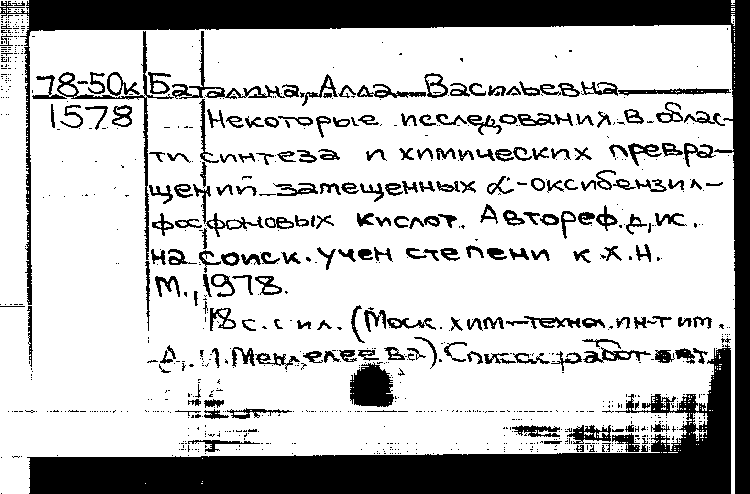 78-50к Баталина, Алла Васильевна
1578 Некоторые исследования в облас-
ти синтеза и химических превра-
щений замещенных α-оксибензил-
фосфоновых кислот. Автореф. дис.
на соиск. учен степени к.х.н.
М., 1978.
18 с. с ил. (Моск. хим-технол. ин-т им.
Д. И. Менделеева). Список работ авт.